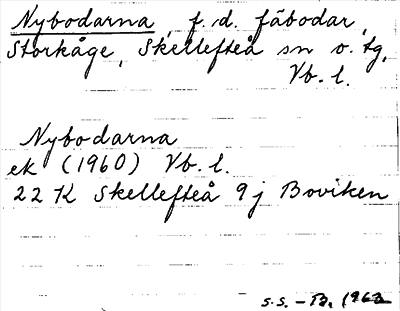 Nybodarna, f.d. fäbodar,
Storkåge, Skellefteå sn o. tg,
Vb. l.
Nybodarna
ek (1960) Vb. l.
22 K Skellefteå 9j Boviken
S.S. - B. 1962